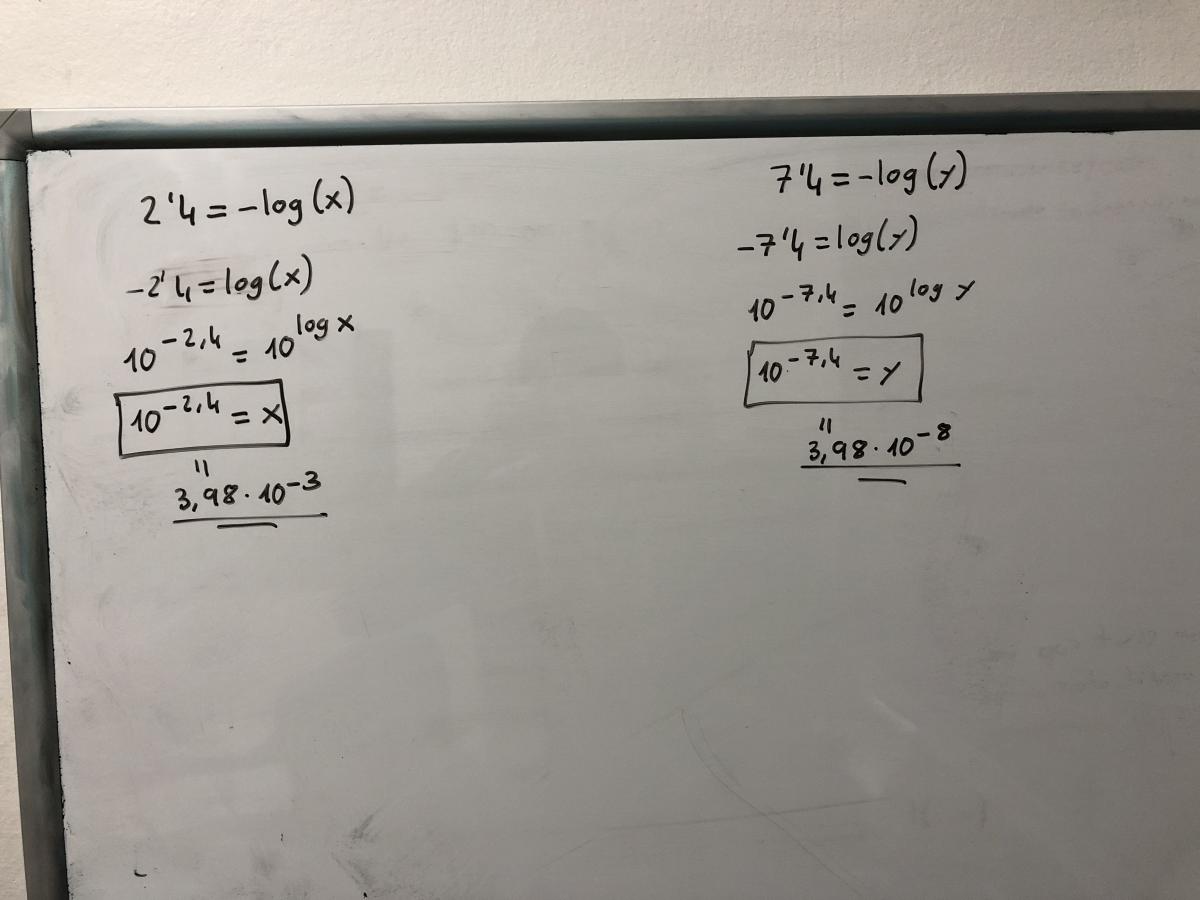 2'4 = -log(x)
-2'4 = log(x)
10^-2,4 = 10^log x
10^-2,4 = x
"
3,98 · 10^-3
7'4 = -log(y)
-7'4 = log(y)
10^-7,4 = 10^log y
10^-7,4 = y
"
3,98 · 10^-8